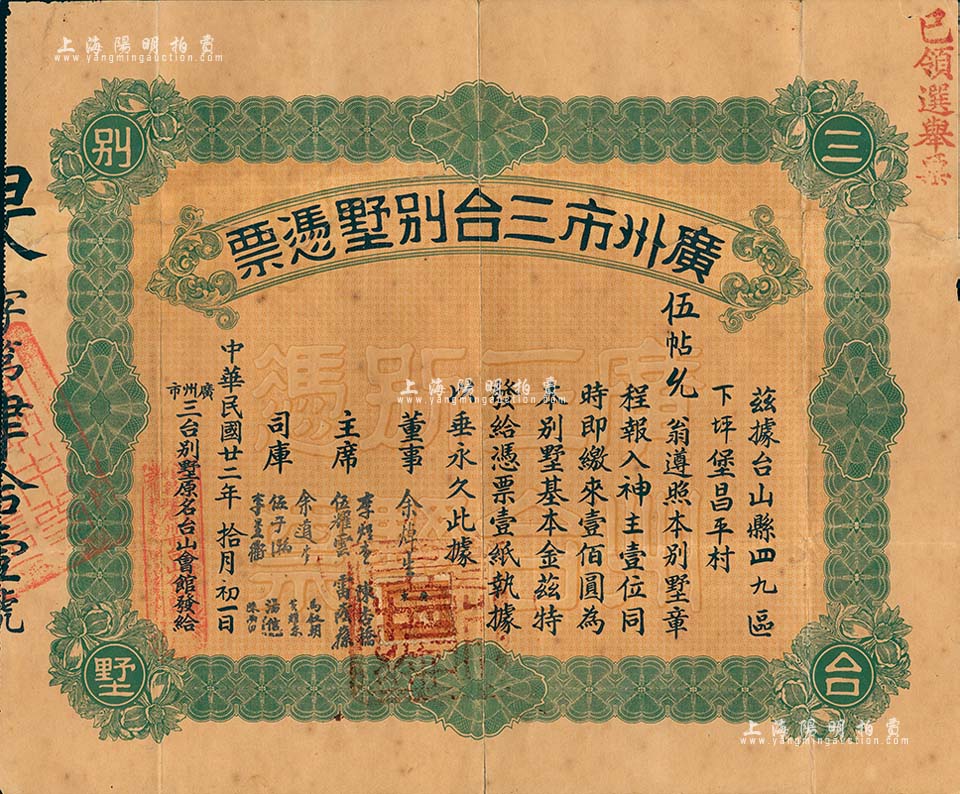 上海陽明拍賣
www.yangmingauction.com
已領選舉票
三
台
別
墅
廣州市三台別墅憑票
茲據台山縣四九區
下坪堡昌平村
伍帖允翁遵照本別墅章
程報入神主壹位同
時即繳來壹佰圓為
本別墅基本金茲特
發給憑票壹紙執據
以垂永久此據
董事
主席
司庫
伍耀雲
余道生
伍于瀚
李星衢
中華民國廿二年拾月初一日
廣州市三台別墅原名台山會館發給
字第肆拾壹號
上海陽明拍賣
www.yangmingauction.com
上海陽明拍賣
www.yangmingauction.com